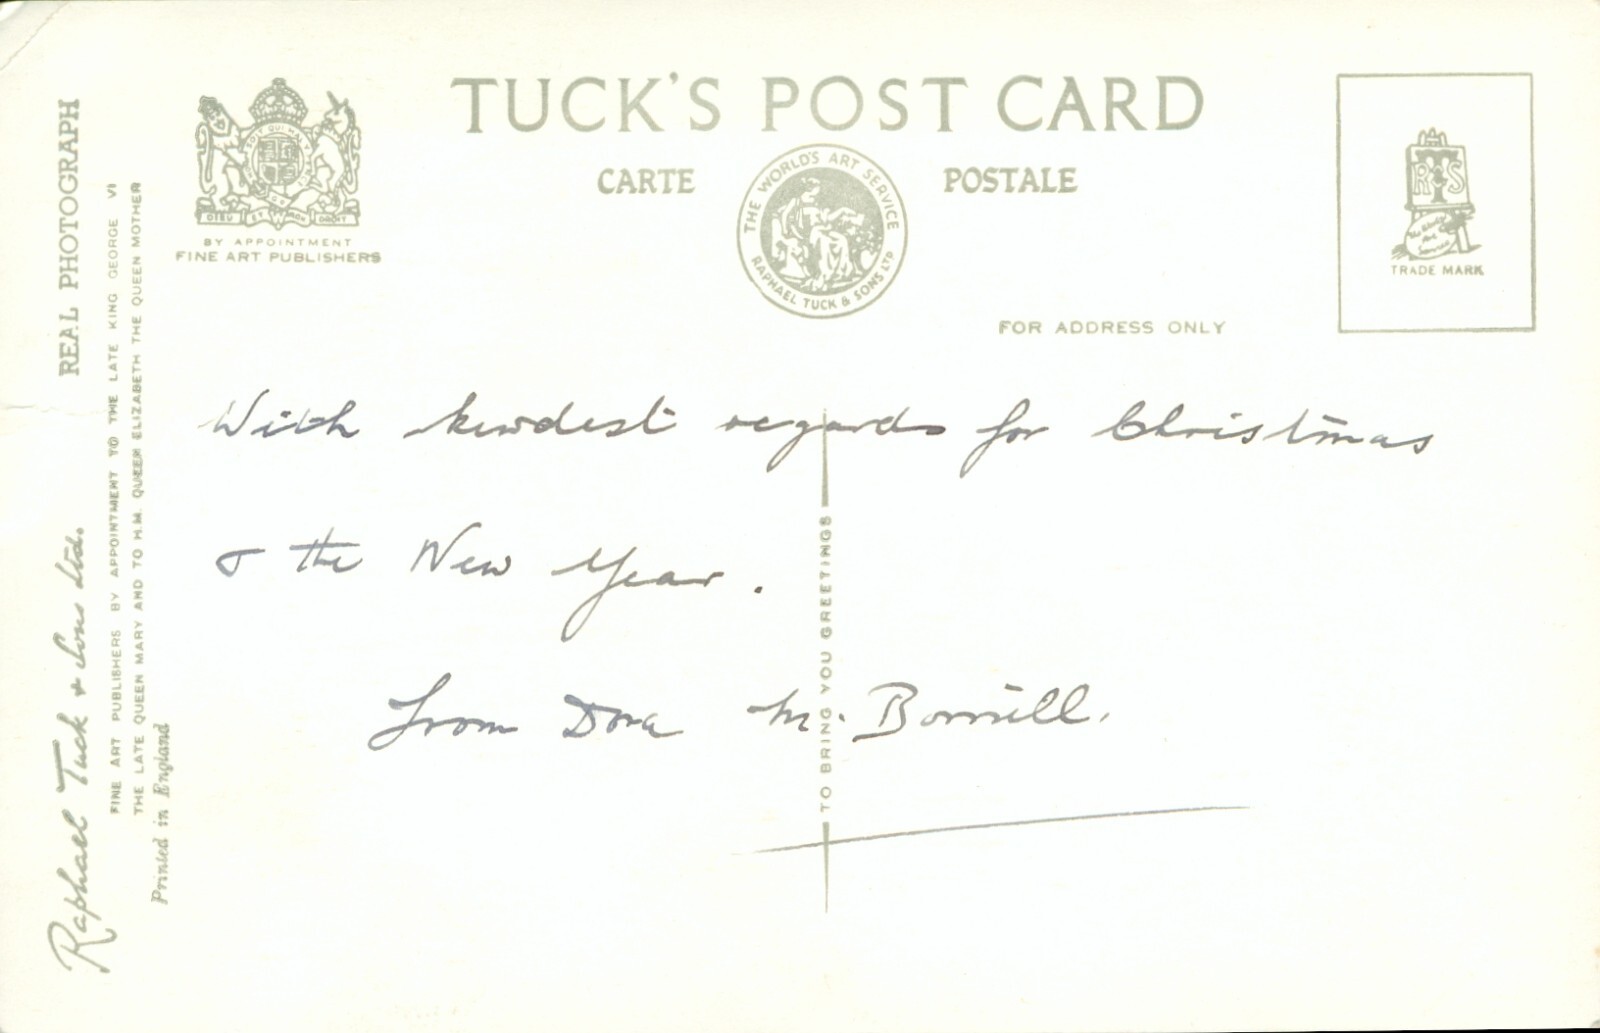 TUCK'S POST CARD
CARTE POSTALE
THE WORLD'S ART SERVICE
RAPHAEL TUCK & SONS LTD
DIEU ET MON DROIT
BY APPOINTMENT
FINE ART PUBLISHERS
R T S
TRADE MARK
FOR ADDRESS ONLY
With kindest regards for Christmas
& the New Year.
From Dora M. Borrill.
TO BRING YOU GREETINGS
REAL PHOTOGRAPH
Raphael Tuck & Sons Ltd.
FINE ART PUBLISHERS BY APPOINTMENT TO THE LATE KING GEORGE VI
THE LATE QUEEN MARY AND TO H.M. QUEEN ELIZABETH THE QUEEN MOTHER
Printed in England